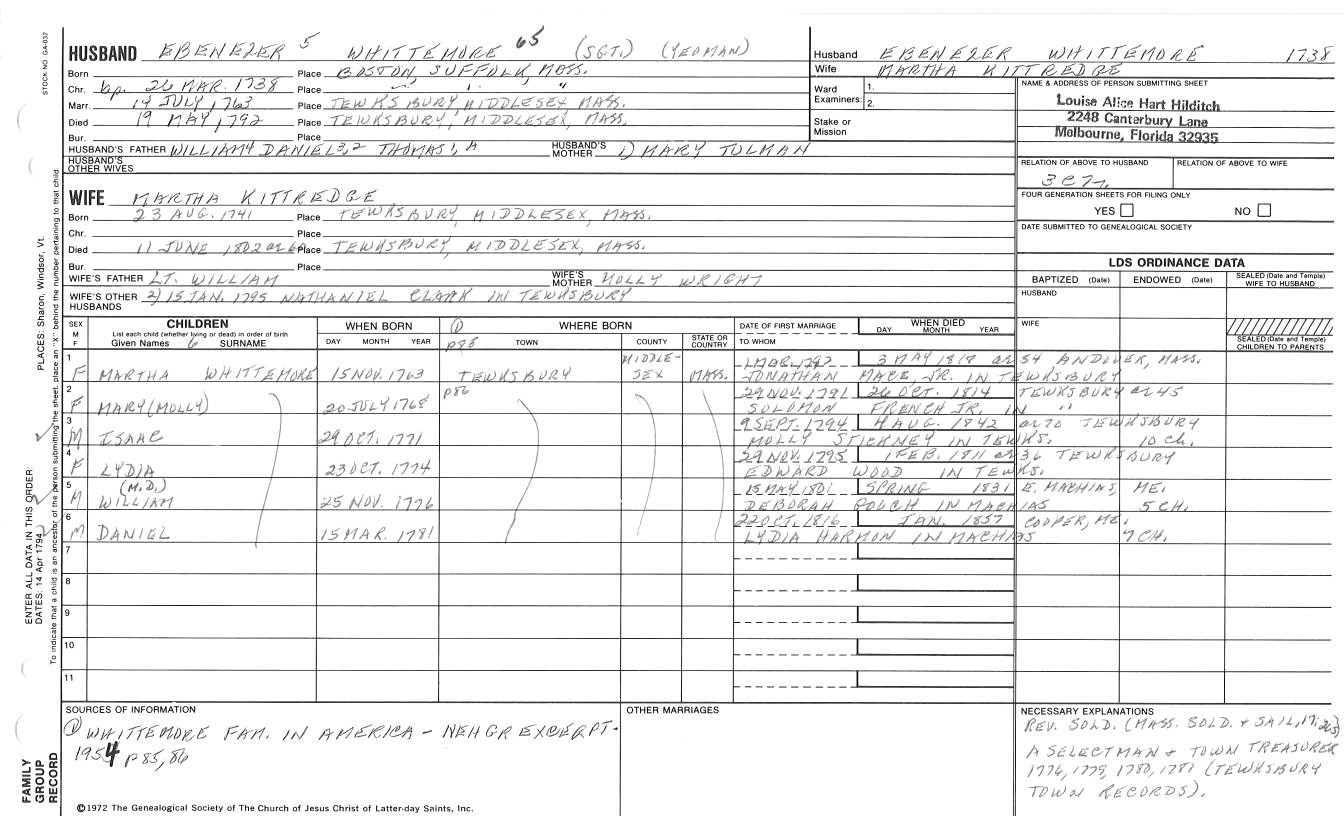 STOCK NO. GA-037
HUSBAND EBENEZER 5 WHITTEMORE 65 (SGT.) (YEOMAN)
Born Place BOSTON, SUFFOLK, MASS.
Chr. bp. 26 MAR. 1738 Place " " "
Marr. 14 JULY, 1763 Place TEWKSBURY, MIDDLESEX, MASS.
Died 19 MAY, 1792 Place TEWKSBURY, MIDDLESEX, MASS.
Bur. Place
HUSBAND'S FATHER WILLIAM4 DANIEL3,2 THOMAS1, A HUSBAND'S MOTHER 1) MARY TOLMAN
HUSBAND'S OTHER WIVES
WIFE MARTHA KITTREDGE
Born 23 AUG. 1741 Place TEWKSBURY, MIDDLESEX, MASS.
Chr. Place
Died 11 JUNE 1802 Place TEWKSBURY, MIDDLESEX, MASS.
Bur. Place
WIFE'S FATHER LT. WILLIAM WIFE'S MOTHER MOLLY WRIGHT
WIFE'S OTHER HUSBANDS 2) 15 JAN. 1795 NATHANIEL CLARK IN TEWKSBURY
Husband EBENEZER WHITTEMORE 1738
Wife MARTHA KITTREDGE
Ward Examiners: 1. 2.
Stake or Mission
NAME & ADDRESS OF PERSON SUBMITTING SHEET
Louise Alice Hart Hilditch
2248 Canterbury Lane
Melbourne, Florida 32935
RELATION OF ABOVE TO HUSBAND RELATION OF ABOVE TO WIFE
FOUR GENERATION SHEETS FOR FILING ONLY
YES NO
DATE SUBMITTED TO GENEALOGICAL SOCIETY
LDS ORDINANCE DATA
BAPTIZED (Date) ENDOWED (Date) SEALED (Date and Temple) WIFE TO HUSBAND
HUSBAND
WIFE
SEALED (Date and Temple) CHILDREN TO PARENTS
SEX M F
CHILDREN
List each child (whether living or dead) in order of birth
Given Names 6 SURNAME
WHEN BORN
DAY MONTH YEAR
① p85
WHERE BORN
TOWN COUNTY STATE OR COUNTRY
DATE OF FIRST MARRIAGE
TO WHOM
WHEN DIED
DAY MONTH YEAR
1 MAR. 1797 3 MAY 1818 ae 54 ANDOVER, MASS.
1 F MARTHA WHITTEMORE 15 NOV. 1763 TEWKSBURY MIDDLESEX MASS. JONATHAN MACE, JR. IN TEWKSBURY
p86
29 NOV. 1791 26 OCT. 1814 TEWKSBURY ae 45
2 F MARY (MOLLY) 20 JULY 1768 SOLOMON FRENCH JR. IN "
9 SEPT. 1794 4 AUG. 1842 ae 70 TEWKSBURY
3 M ISAAC 29 OCT. 1771 MOLLY STICKNEY IN TEWKS. 10 CH.
29 NOV. 1795 1 FEB. 1811 ae 36 TEWKSBURY
4 F LYDIA 23 OCT. 1774 EDWARD WOOD IN TEWKS.
15 MAY 1801 SPRING 1831 E. MACHIAS, ME.
5 M (M.D.) WILLIAM 25 NOV. 1776 DEBORAH FOLCH IN MACHIAS 5 CH.
22 OCT. 1816 JAN. 1857 COOPER, ME.
6 M DANIEL 15 MAR. 1781 LYDIA HARMON IN MACHIAS 7 CH.
7
8
9
10
11
SOURCES OF INFORMATION
① WHITTEMORE FAM. IN AMERICA - NEHGR EXCERPT-
1954 p85,86
OTHER MARRIAGES
NECESSARY EXPLANATIONS
REV. SOLD. (MASS. SOLD. & SAIL,
A SELECTMAN & TOWN TREASURER
1776, 1779, 1780, 1781 (TEWKSBURY
TOWN RECORDS).
©1972 The Genealogical Society of The Church of Jesus Christ of Latter-day Saints, Inc.
FAMILY GROUP RECORD
ENTER ALL DATA IN THIS ORDER
DATES: 14 Apr 1794
PLACES: Sharon, Windsor, Vt.
To indicate that a child is an ancestor of the person submitting the sheet, place an "X" behind the number pertaining to that child.